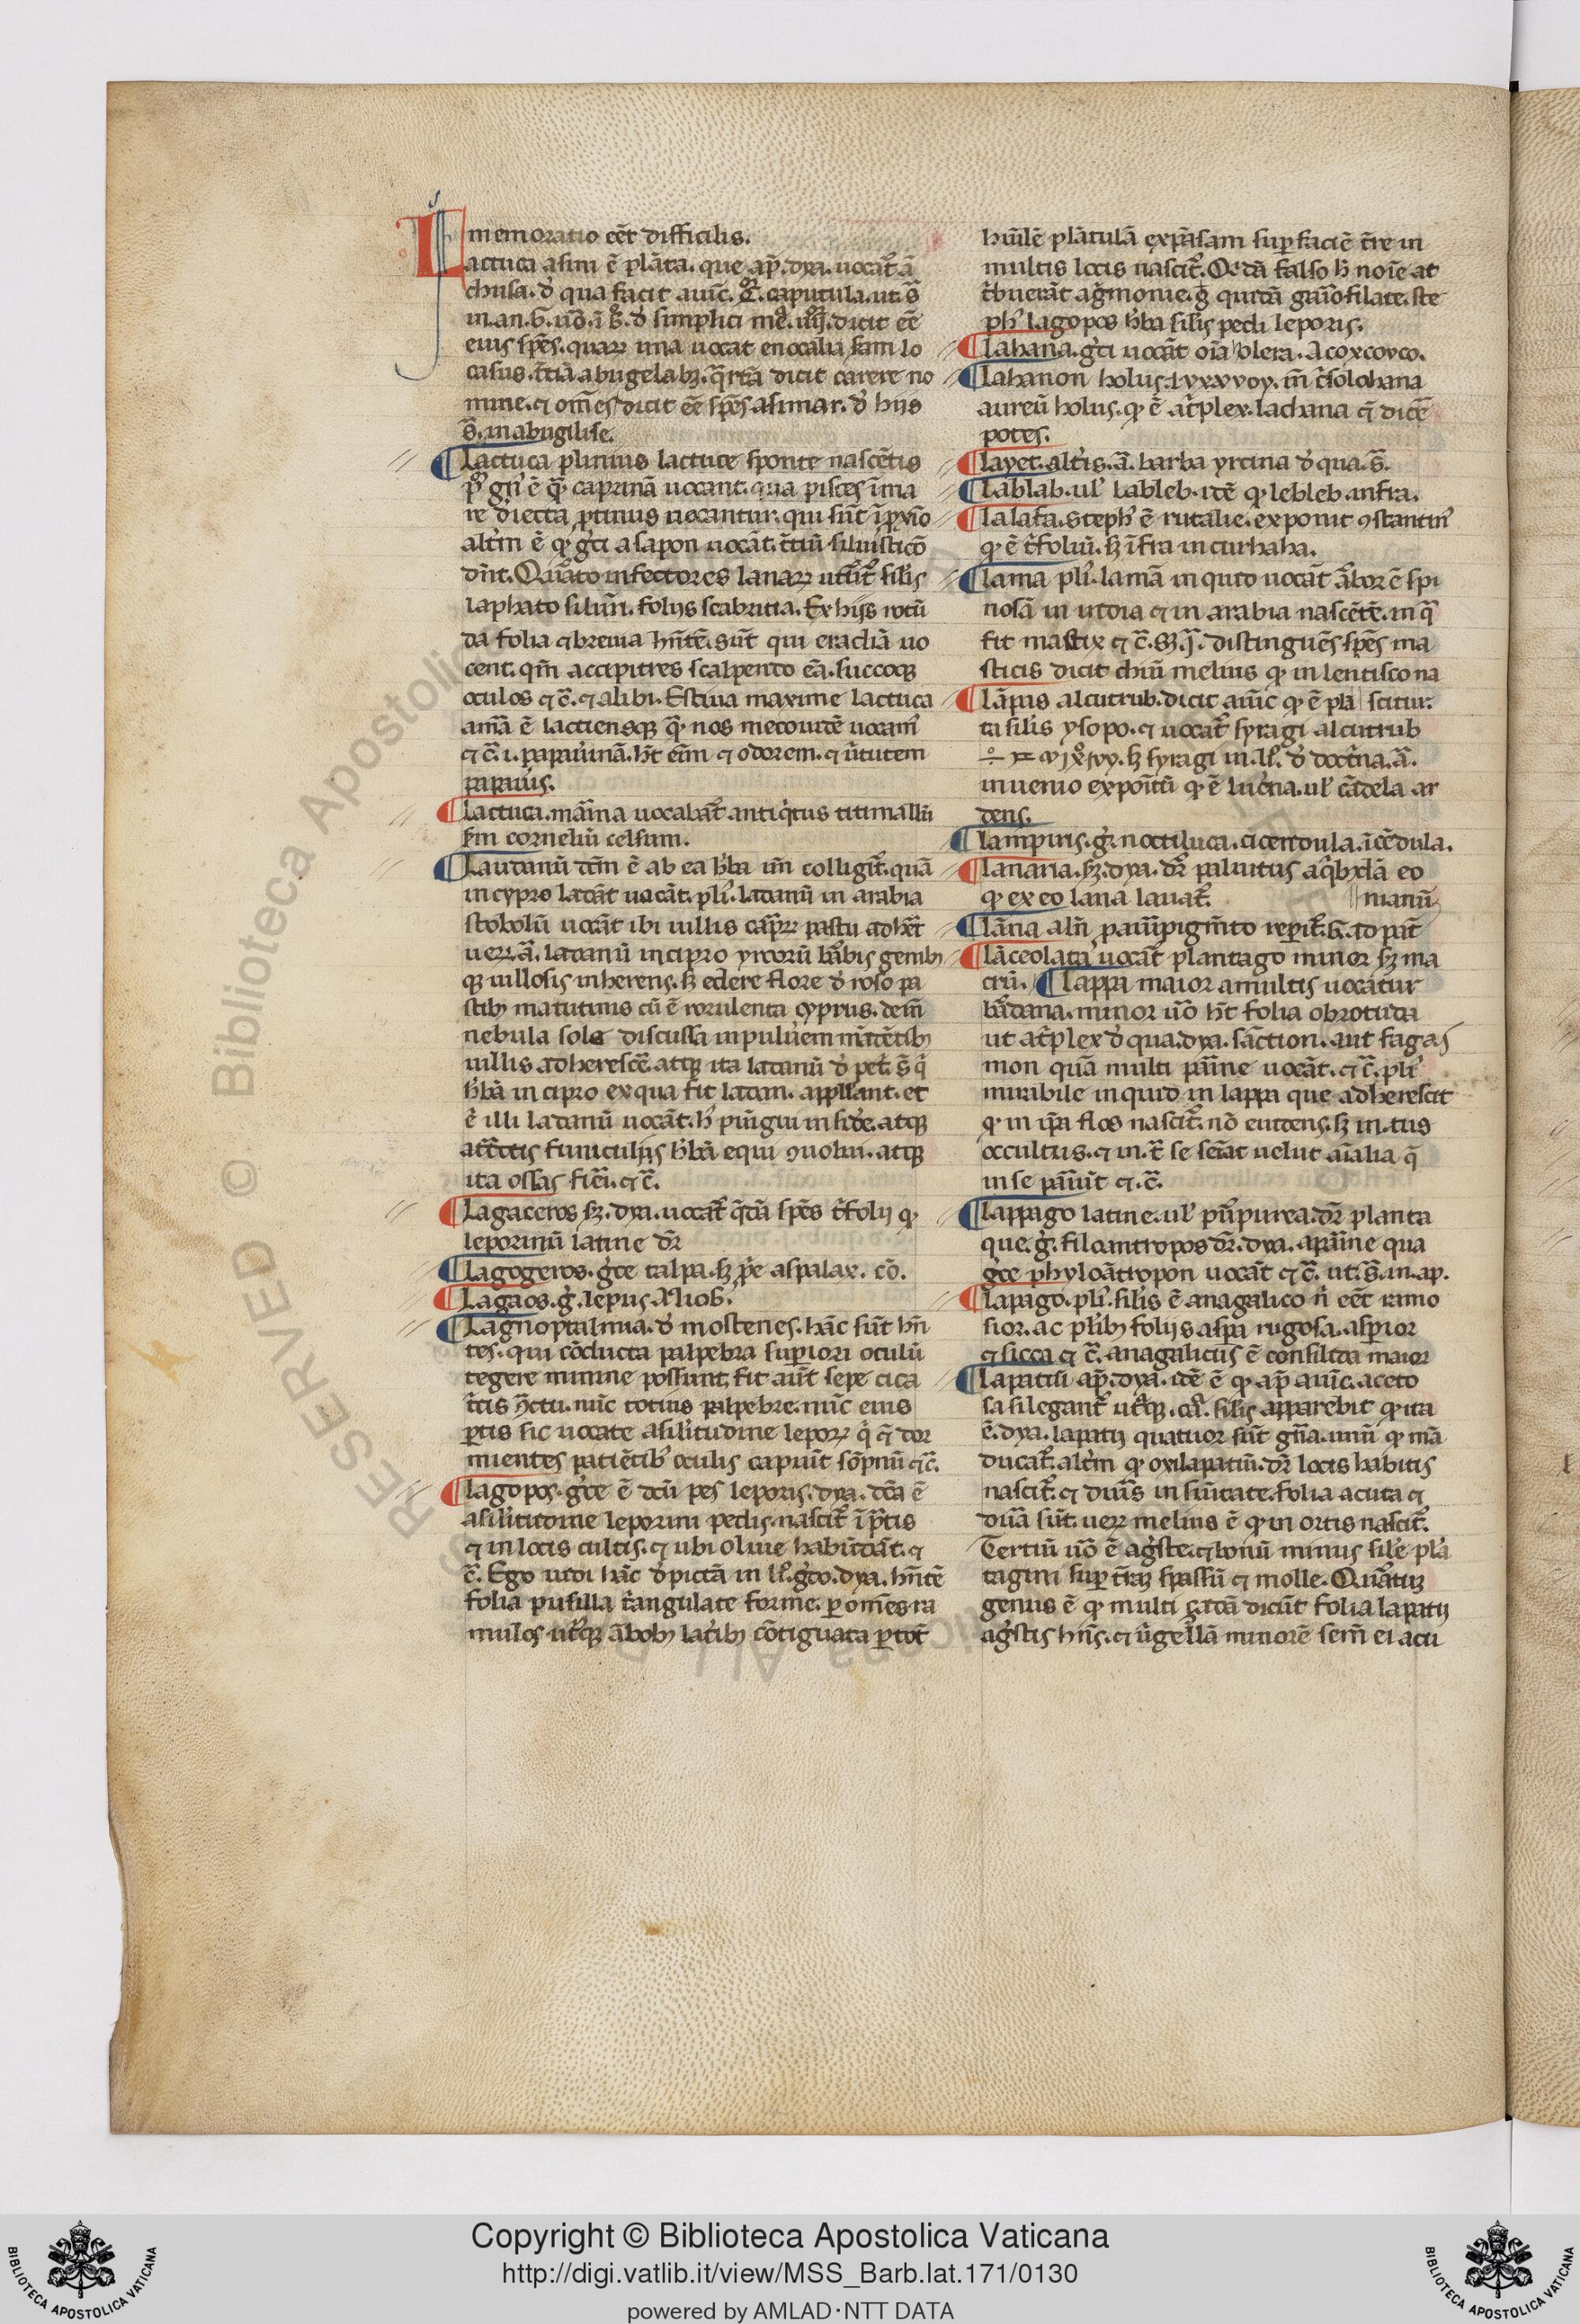 memoratio eēt difficilis.
Lactuca asini ē plāta. que ap̄. dya. uocat᷑ ā
chusa. d̓ qua facit auic̄. c̄. caputula. ut. s̄
in. an. G. ūo. ī
eius sp̄es. quaꝝ una uocat enocalia fam lo
casus. t̄ciā abugelabꝫ. q̄rtā dicit carere no
mine. ⁊ om̄es dicit eē sp̄es asinar. d̓ hijs
s̄. in abugilise.
Lactuca plinius lactuce sponte nascētis
gn̄ ē q̄ caprinā uocant. qua pisces ī ma
re diecta protinus necantur. qui sūt ī ꝓxīo
alt̓m ē qꝫ gͥci asapon uocāt. t̄ciū siluisticō
dn̄t. Quāto infectores lanaꝝ utūt᷑ sil̓is
laphato siluīi. folijs scabritia. Ex hijs rotū
da folia ⁊ breuia hn̄tē. sūt qui eracliā uo
cent. qm̄ accipitres scalpendo eā. succoqꝫ
oculos ⁊ c̄. ⁊ alibi. Estiua maxime lactuca
amā ē lactiensqꝫ q̄ nos mecouidē uocam᷒
⁊ c̄. i. papauīnā. hꝫ eīm ⁊ odorem. ⁊ ūtutem
papauīs.
lactuca. maīna uocabat᷑ antiqͥtus titimallū
sm corneliū celsum.
Laudanū dc̄m ē ab ea h̓ba un̄ colligit᷑. quā
in cypro ladāt uocāt. pli᷒. ladanū in arabia
stobolū uocāt ibi uillis capꝝ pastu adhēt
ueꝝ. ā. ladanū in cipro yrcoꝝ barbis genibꝫ
qꝫ uillosis inherens. sꝫ edere flore d̓ roso pa
stibꝫ matutinis cū ē rorulenta cyprus. dem̄
nebula sole discussa in puluerem madētibꝫ
uillis adherescē. atqꝫ ita ladanū d̓ pet. s̄ qͥ
h̓bā in cipro ex qua fit ladan. appllant. et
ē illi ladanū uocāt. h᷒ pīgui in sidē. atqꝫ
att̓ctis funiculis h̓bā equi ꝯuolui. atqꝫ
ita offas fieri. ⁊ c̄.
Lagaceros sꝫ. dya. uocat᷑ q̄dā sp̄es t̓folij qꝫ
leporinū latine dr̄
Lagogeros. gͥce talpa. sꝫ ꝓe aspalax. cō.
Lagaos. g̓. lepus
Lagnoptalmia. d̓mostenes. hāc sūt hn̄
tes. qui cōducta palpebra superiori oculū
tegere minime possunt. fit aūt sepe cica
t̓cis ictu. nūc totius palpebre. nūc eius
ꝑtis sic uocate a silitudine leporꝝ qͥ ⁊ dor
mientes patētibꝫ oculis capiūt sōpnū ⁊ c̄.
lagopos. gͥce ē dcū pes leporis. dya. dc̄a ē
a silitudine leporini pedis. nascit᷑ ī pͣtis
⁊ in locis cultis. ⁊ ubi oliue habūdāt. ⁊
c̄. Ego uidi hāc d̓pictā in li᷒. gͥco. dya. hn̄tē
folia pusilla t̓angulate forme. ꝑ om̄es ra
mulos. ut̓qꝫ ābobꝫ lat̓ibꝫ cōtiguata ꝑ tot᷑
hūilē plātulā expāsam sup faciē t̄re in
multis locis nascit᷑. Qdā falso h̓ noīe at
t̓buerāt ag̓monie. g᷒ quidā gaīofilate. ste
ph᷒ lagopos h̓ba silis pedi leporis.
Lahana. gͥci uocāt oīa olera. Λαχανα.
Lahanon holus. m̄ c̓solohana
aureū holus. qꝫ ē at̓plex. lachana ⁊ dicē
potes.
layet. alt̓is. ā. barba yrcina d̓ qua. s̄.
Lablab. ul᷒ lableb. idē qꝫ lebleb. infra.
lalafa. Steph᷒ ē rutalie. exponit ꝯstantin᷒
qꝫ ē t̓foliū. sꝫ īfra in curhaha.
lama pli᷒. lamā inquid uocāt ārbor ē spi
nosā in india ⁊ in arabia nascētē. in q̄
fit mastix ⁊ c̄. distinguēs sp̄es ma
sticis dicit chiū melius qꝫ in lentisco na
lāpas alcutrub. dicit auic̄ qꝫ ē plā scitur.
ta silis ysopo. ⁊ uocat᷑ syragi alcutrub
sꝫ syragi in. li᷒. d̓ doct̓na. ā.
inuenio exponitū qꝫ ē luc̓na. ul᷒ cādela ar
dens.
lampiris. g̓. noctiluca. cicendula. īcēdula.
lanaria. sꝫ. dya. dr̄ palutus a qͥbꝫdā eo
qꝫ ex eo lana lauat᷑. nianū
lāna al᷒n p̄ auripigm̄to reperit᷑. G. ad pāt
lāceolata uocāt plantago minor sꝫ ma
crū. Lappa maior a multis uocātur
bādana. minor ūo hꝫ folia obrotūda
ut at̓plex d̓ qua. dya. fāction. aut fagas
mon quā multi paīne uocāt. ⁊ c̄. pli᷒
mirabile inquid in lappa que adherescit
qꝫ in ip̄a flos nascit᷑. nō euidens. sꝫ in. tus
occultus. ⁊ in. t̓ se sēiat uelut aīalia q̄
in se pariūt ⁊ c̄.
lappago latine. ul᷒ pūpurea. dr̄ planta
que. g̓. filoantropos dr̄. dya. aparine qua
gͥce phyloātropon uocāt ⁊ c̄. ut. s̄. in. ap.
lapago. pli᷒. silis ē anagalico n̄ eēt ramo
sior. ac pl᷒ibꝫ folijs aspa rugosa. asperior
⁊ sicca ⁊ c̄. anagalicus ē consilida maior
lapatiū ap̄. dya. idē ē qꝫ ap̄ auic. aceto
sa si legant᷑ ut̓qꝫ. cā. silis apparebit qꝫ ita
ē. dya. lapatij quatuor sūt gn̄a. unū qꝫ mā
ducat᷑. alt̓m qꝫ oxilapatiū. dr̄ locis habitis
nascit᷑. ⁊ durūs in sūitate. folia acuta ⁊
durā sūt. ueꝝ melius ē qꝫ in ortis nascit᷑.
Tertiū ūo ē ag̓ste. ⁊ bonū minus sile plā
tagini sup t̄ram spassū ⁊ molle. Quātū
genus ē qꝫ multi dicūt folia lapatij
ag̓stis hn̄s. ⁊ ūgellā minorē sem̄ ei acu
Copyright © Biblioteca Apostolica Vaticana
http://digi.vatlib.it/view/MSS_Barb.lat.171/0130
powered by AMLAD·NTT DATA